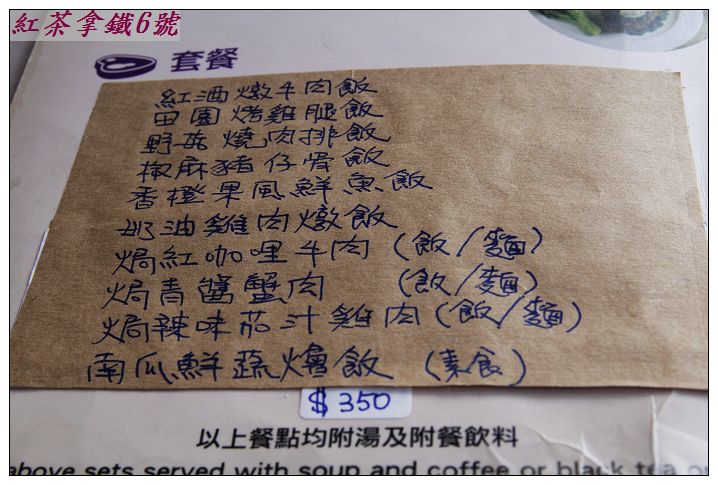 紅茶拿鐵6號
套餐
紅酒燉牛肉飯
田園烤雞腿飯
野菇燒肉排飯
椒麻豬仔骨飯
香橙果風鮮魚飯
奶油雞肉燉飯
焗紅咖哩牛肉(飯/麵)
焗青醬蟹肉 (飯/麵)
焗辣味茄汁雞肉(飯/麵)
南瓜鮮蔬燴飯 (素食)
$350
以上餐點均附湯及附餐飲料
above sets served with soup and coffee or black tea or